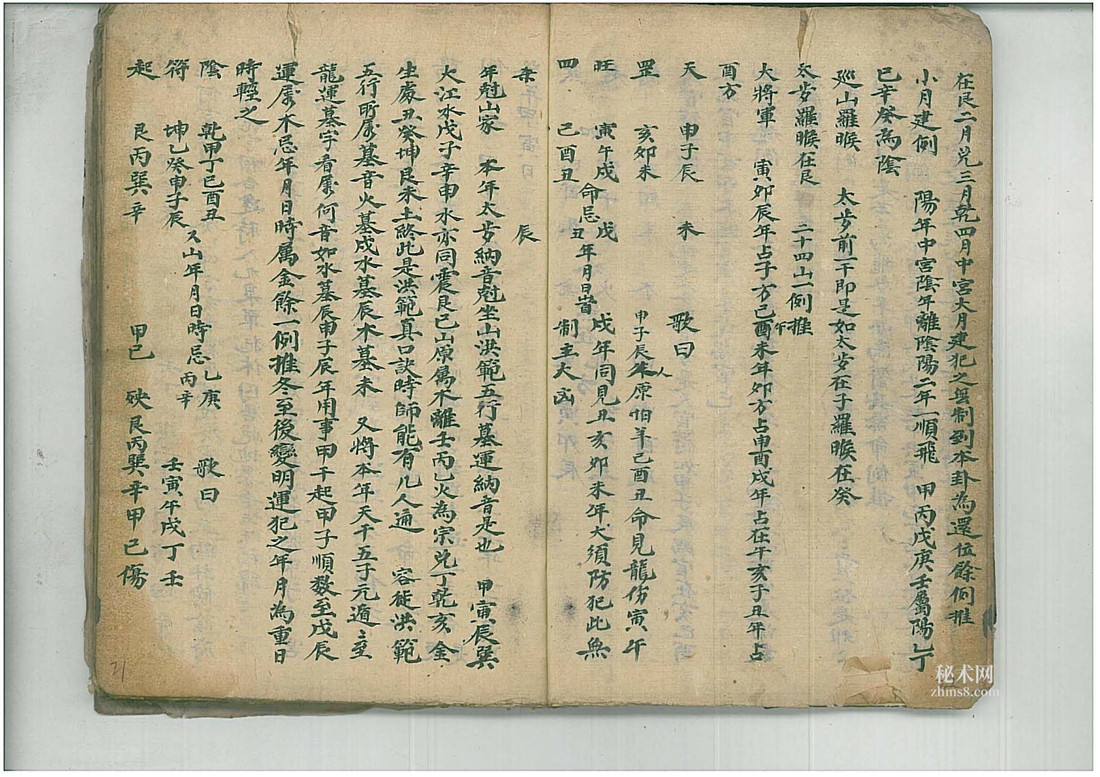 在艮二月兑三月乾四月中宮大月建犯之無制到本卦為還位餘倒推
小月建例 陽年中宮陰年離陰陽二年一順飛 甲丙戊庚壬屬陽乙丁
巳辛癸為陰
廵山羅睺 太岁前一干即是如太岁在子羅睺在癸
太岁羅睺在艮 二十四山一例推
大將軍 寅卯辰年占子方巳午未年卯方占申酉戌年占在午亥子丑年占
酉方
天 申子辰 未 歌曰
罡 亥卯未 甲子辰人原怕羊巳酉丑命見龍傍寅午
旺 寅午戌命忌戌丑年月日皆 戌年同見丑亥卯未年犬須防犯此無
四 巳酉丑 制主大凶
柒 辰
年尅山家 本年太岁納音尅坐山洪範五行墓運納音是也 甲寅辰巽
大江水戊子辛申水亦同震艮巳山原属木離壬丙乙火為宗兑丁乾亥金
生處丑癸坤艮未土終此是洪範真口訣時師能有几人通 容徒洪範
五行所属墓音火墓戌水墓辰木墓未 又將本年天干五子元遁之至
龍運墓字看属何音如水墓辰申子辰年用事甲干起甲子順数至戊辰
運属木忌年月日時属金餘一例推冬至後變明運犯之年月為重日
時輕之
陰 乾甲丁巳酉丑 歌曰
符 坤乙癸申子辰 又山年月日時忌 乙庚 丙辛 壬寅午戌丁壬
起 艮丙巽辛 甲巳 殃艮丙巽辛甲巳傷
21
秘术网
zhms8.com